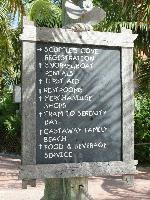 ↑ SCUTTLE'S COVE
REGISTRATION
↑ SNORKEL/BOAT
RENTALS
↑ FIRST AID
↑ RESTROOMS
↑ MERCHANDISE
SHOPS
↑ TRAM TO SERENITY
BAY
↑ CASTAWAY FAMILY
BEACH
↑ FOOD & BEVERAGE
SERVICE